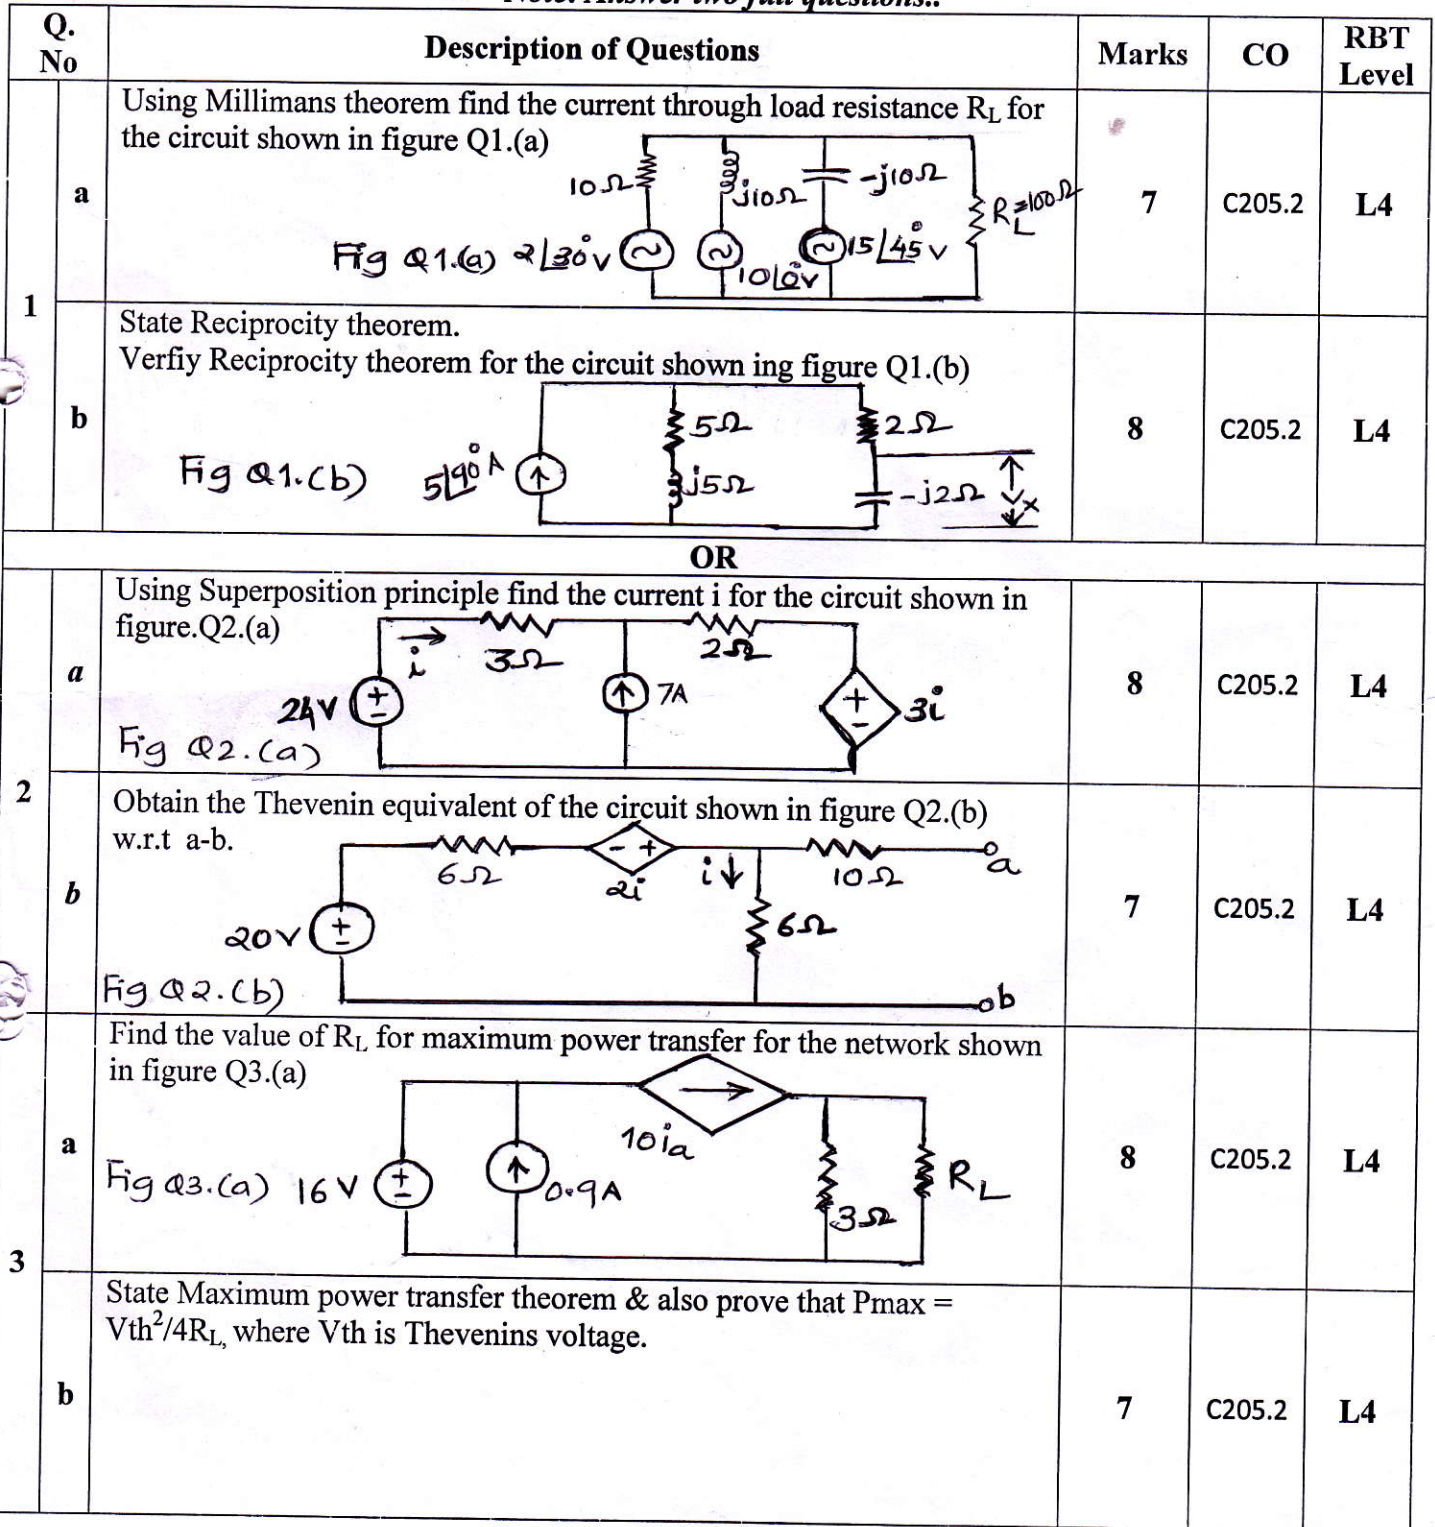 Note: Answer two full questions..
Q. No
Description of Questions
Marks
CO
RBT Level
1
a
Using Millimans theorem find the current through load resistance RL for
the circuit shown in figure Q1.(a)
10Ω
j10Ω
-j10Ω
RL=100Ω
Fig Q1.(a) 2∠30°v
10∠0°v
15∠45°v
7
C205.2
L4
b
State Reciprocity theorem.
Verfiy Reciprocity theorem for the circuit shown ing figure Q1.(b)
5Ω
2Ω
Fig Q1.(b)
5∠90° A
j5Ω
-j2Ω
Vx
8
C205.2
L4
OR
2
a
Using Superposition principle find the current i for the circuit shown in
figure.Q2.(a)
i
3Ω
2Ω
24V
+
-
7A
+
-
3i
Fig Q2.(a)
8
C205.2
L4
b
Obtain the Thevenin equivalent of the circuit shown in figure Q2.(b)
w.r.t a-b.
6Ω
- +
2i
i
10Ω
a
20V
+
-
6Ω
Fig Q2.(b)
b
7
C205.2
L4
3
a
Find the value of RL for maximum power transfer for the network shown
in figure Q3.(a)
10ia
Fig Q3.(a) 16V
+
-
0.9A
3Ω
RL
8
C205.2
L4
b
State Maximum power transfer theorem & also prove that Pmax =
Vth²/4RL, where Vth is Thevenins voltage.
7
C205.2
L4